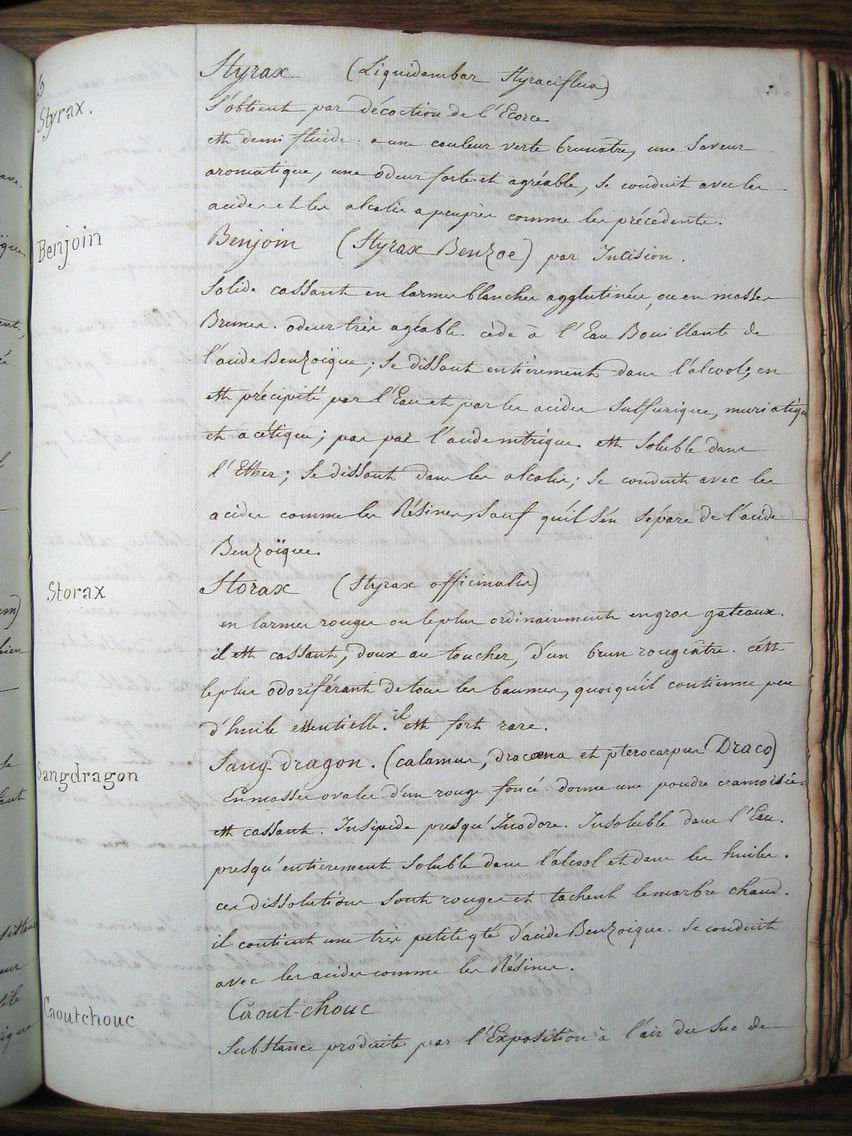 Styrax.
Styrax (Liquidambar Styraciflua)
S'obtient par décoction de l'Ecorce
est demi fluide. a une couleur verte brunatre, une Saveur
aromatique, une odeur forte et agréable, Se conduit avec les
acides et les alcalis apeuprès comme les précédents.
Benjoin
Benjoin (Styrax Benzoe) par Incision.
Solide cassant en larmes blanches agglutinées, ou en masses
Brunes. odeur très agéable cède à l'Eau Bouillante de
l'acide Benzoïque; Se dissout entièrement dans l'alcool; en
est précipité par l'Eau et par les acides Sulfurique, muriatique
et acétique; pas par l'acide nitrique. est Soluble dans
l'Ether; Se dissout dans les alcalis; Se conduit avec les
acides comme les Résines, Sauf qu'il s'en Sépare de l'acide
Benzoïque.
Storax
Storax (Styrax officinalis)
en larmes rouges ou leplus ordinairement en gros gateaux.
il est cassant, doux au toucher, d'un brun rougeâtre. c'est
le plus odoriférant de tous les baumes, quoiqu'il contienne peu
d'huile essentielle. il est fort rare.
Sangdragon
Sang-dragon. (calamus, dracæna et pterocarpus Draco)
En masses ovales d'un rouge foncé. donne une poudre cramoisie
est cassant. Insipide presqu'Inodore. Insoluble dans l'Eau.
presqu'entierement Soluble dans l'alcool et dans les huiles.
ces dissolutions sont rouges et tachent le marbre chaud.
il contient une très petite qté d'acide Benzoïque. Se conduit
avec les acides comme les Résines.
Caoutchouc
Caout-chouc
Substance produite par l'Exposition à l'air du Suc de